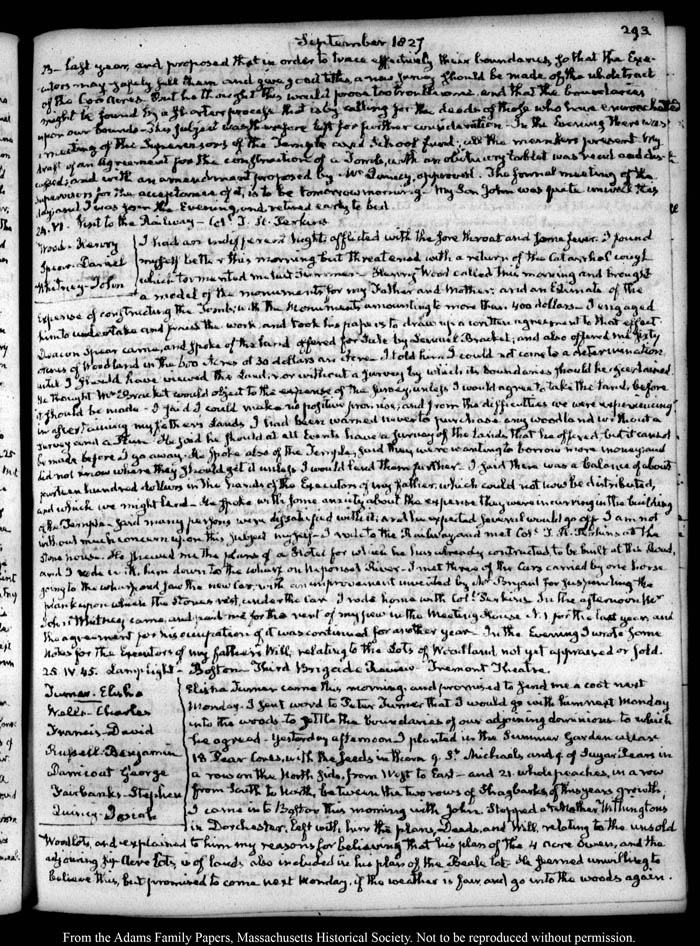 293
September 1827
B- last year, and proposed that in order to trace effectively their boundaries so that the Exe-
cutors may safely sell them and give good titles a new Survey should be made of the whole tract
of the 600 Acres. But he thought this would prove too troublesome and that the boundaries
might be found by a shorter process that is by calling for the deeds of those who have encroached
upon our bounds- This subject was therefore left for further consideration- In the Evening there was
a meeting of the Supervisors of the Temple and School fund; all the members present. My
draft of an Agreement for the construction of a Tomb, with an obituary tablet was read and dis-
cussed; and with an amendment proposed by Mr Quincy, approved. The formal meeting of the
Supervisors for the acceptance of it, is to be tomorrow morning- My Son John was quite unwell this
day, and I was so in the Evening and retired early to bed.
24. VI. Visit to the Railway- Col. T. H. Perkins
Wood- Henry
Spear- Daniel
Whitney- John
I had an indifferent Night, afflicted with the sore throat and some fever. I found
myself better this morning but threatened with a return of the Catarrhal cough
which tormented me last Summer- Henry Wood called this morning and brought
a model of the monuments for my Father and Mother; and an Estimate of the
Expense of constructing the Tomb; with the Monuments amounting to more than 400 dollars- I engaged
him to undertake and the work and took his papers to draw up a written agreement to that effect.
Deacon Spear came, and spoke of the land offered for Sale by Lemuel Bracket; and also offered me fifty
Acres of Woodland in the 600 Acres at 30 dollars an Acre. I told him I could not come to a determination
until I should have viewed the Land; nor without a survey by which its boundaries should be ascertained.
He thought Mr Bracket would object to the expense of the survey, unless I would agree to take the land, before
it should be made- I said I could make no positive promise; and from the difficulties we were experiencing
in ascertaining my father's lands I had been warned never to purchase any woodland without a
survey and a Plan. He said he should at all Events have a survey of the Lands that he offered, but it cannot
be made before I go away. He spoke also of the Temple; said they were wanting to borrow more money; and
did not know where they should get it unless I would lend them further- I said there was a balance of about
fourteen hundred dollars in the hands of the Executors of my father, which could not now be distributed,
and which we might lend- He spoke with some anxiety about the expense they were incurring in the building
of the Temple- said many persons were dissatisfied with it; and he expected several would go off. I am not
without much concern upon this subject myself- I rode to the Railway and met Col. T. H. Perkins at the
stone house- He shewed me the plans of a Hotel for which he has already contracted to be built at this stand,
and I rode with him down to the wharf on Neponset River- I met three of the Cars carried by one horse
going to the wharf; and saw the new Car, with an improvement invented by Mr Bryant for suspending the
plank upon which the Stones rest, under the Car. I rode home with Col. Perkins. In the afternoon Mr
John Whitney came, and paid me for the rent of my pew in the Meeting House N. 1 for the last year, and
the agreement for his occupation of it was continued for another year- In the Evening I wrote some
Notes for the Executors of my fathers Will, relating to the Lots of Woodland not yet appraised or sold.
25. IV. 45. Lamp light- Boston- Third Brigade Review- Tremont Theatre.
Turner- Elisha
Wells- Charles
Francis- David
Russell- Benjamin
Darricoat George
Fairbanks- Stephen
Quincy- Josiah
Elisha Turner came this morning, and promised to send me a coat next
Monday. I sent word to Peter Turner that I would go with him next Monday
into the woods to settle the boundaries of our adjoining dominions to which
he agreed- Yesterday afternoon I planted in the Summer Garden
18 Pear Cores, with the seeds in them 9. St Michaels and 9. of Sugar Pears in
a row on the North side, from West to East- and 21. whole peaches, in a row
from South to North, between the two rows of Shagbarks of this years growth.
I came into Boston this morning with John. Stopped at Mother Withingtons
in Dorchester. Left with him the plans, Deeds, and Will, relating to the unsold
Woodlots, and explained to him my reasons for believing that his plan of the 4 acre Swan, and the
adjoining Acre lots, is of lands also included in his plan of the Beale lot. He seemed unwilling to
believe this, but promised to come next Monday, if the weather is fair and go into the woods again.
From the Adams Family Papers, Massachusetts Historical Society. Not to be reproduced without permission.